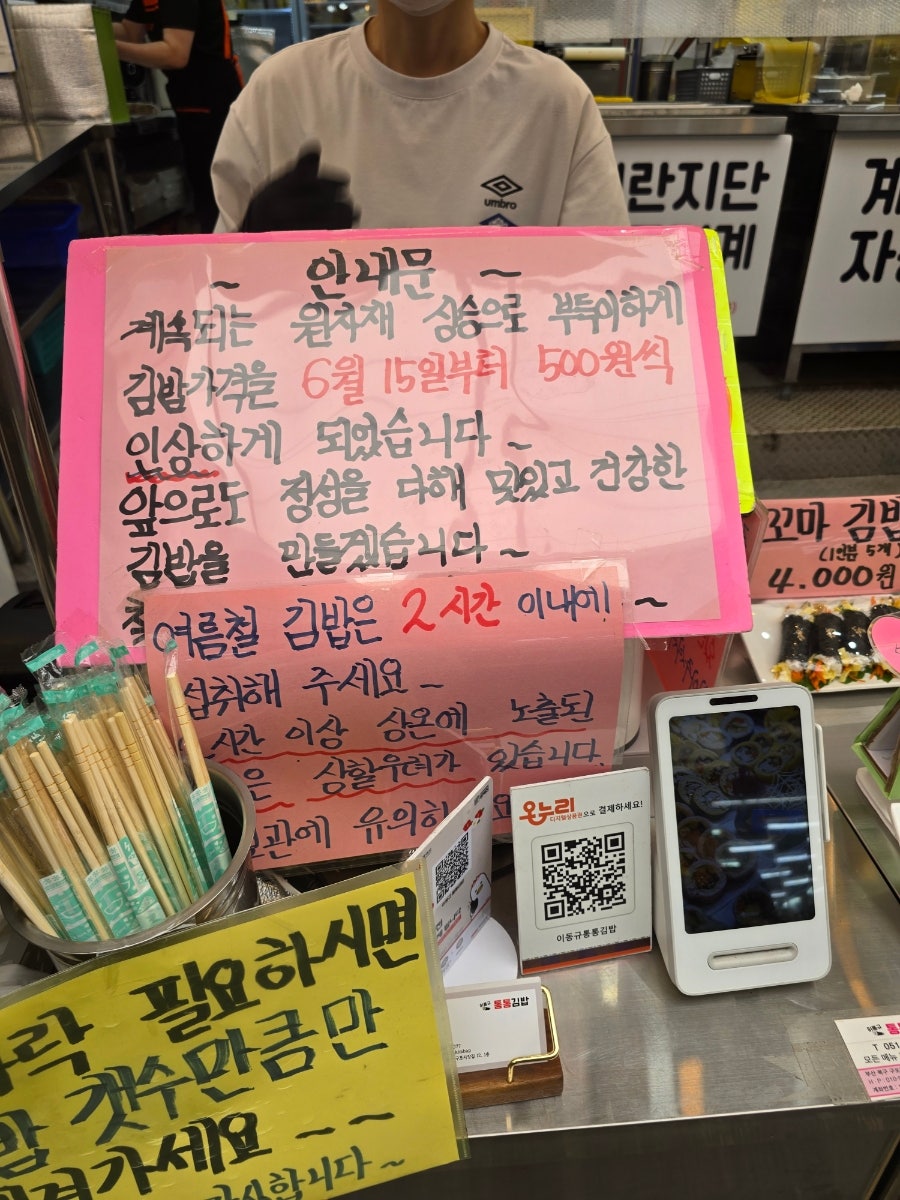 umbro
란지단
계
계
자
~ 안내문 ~
계속되는 원자재 상승으로 부득이하게
김밥가격을 6월 15일부터 500원씩
인상하게 되었습니다~
앞으로도 정성을 다해 맛있고 건강한
김밥을 만들겠습니다~
여름철 김밥은 2시간 이내에!
섭취해 주세요~
시간 이상 상온에 노출된
은 상할우려가 있습니다.
보관에 유의하
꼬마 김밥
(1인분 5개)
4.000원
온누리
디지털상품권으로 결제하세요!
이동규통통김밥
통통김밥
필요하시면
갯수만큼만
가세요 ~~
감사합니다~
T 051
모든 메뉴
부산 북구
H·P:010